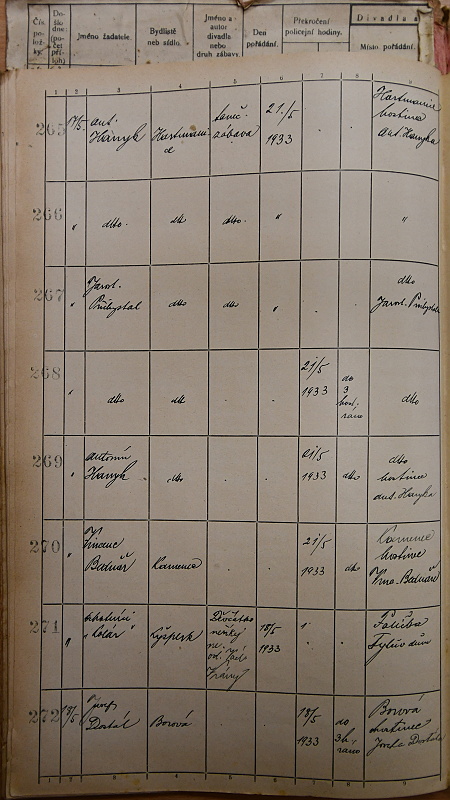 Čís. polož- ky.
Do- šlo dne (po- čet příl- loh)
Jméno žadatele.
Bydliště neb sídlo.
Jméno a- autor divadla nebo druh zábavy.
Den pořádání.
Překročení policejní hodiny.
Divadla a
Místo. pořádání.
1 2 3 4 5 6 7 8 9
265 17/5 Ant. Hanyk
taneč. zábava
21./5 1933
hostinec Ant. Hanyka
266 " dtto. dtto dtto. " "
267 " Jarosl. Přibystal dtto dtto "
dtto Jarosl. Přibystal
268 " dtto dtto . .
21/5 1933
do 3 hod. ráno
dtto
269 " Antonín Hanyk dtto . .
21/5 1933
dtto
dtto hostinec Ant. Hanyka
270 " Vincenc Bednář Kamenec . .
21/5 1933
dtto
Kamenec hostinec Vinc. Bednáře
271 "
18/5 1933
Polička Tylův dům
272 18/5 Josef Dostál Borová . .
18/5 1933
do 3 h. ráno
Borová hostinec Josefa Dostála
1 2 3 4 5 6 7 8 9